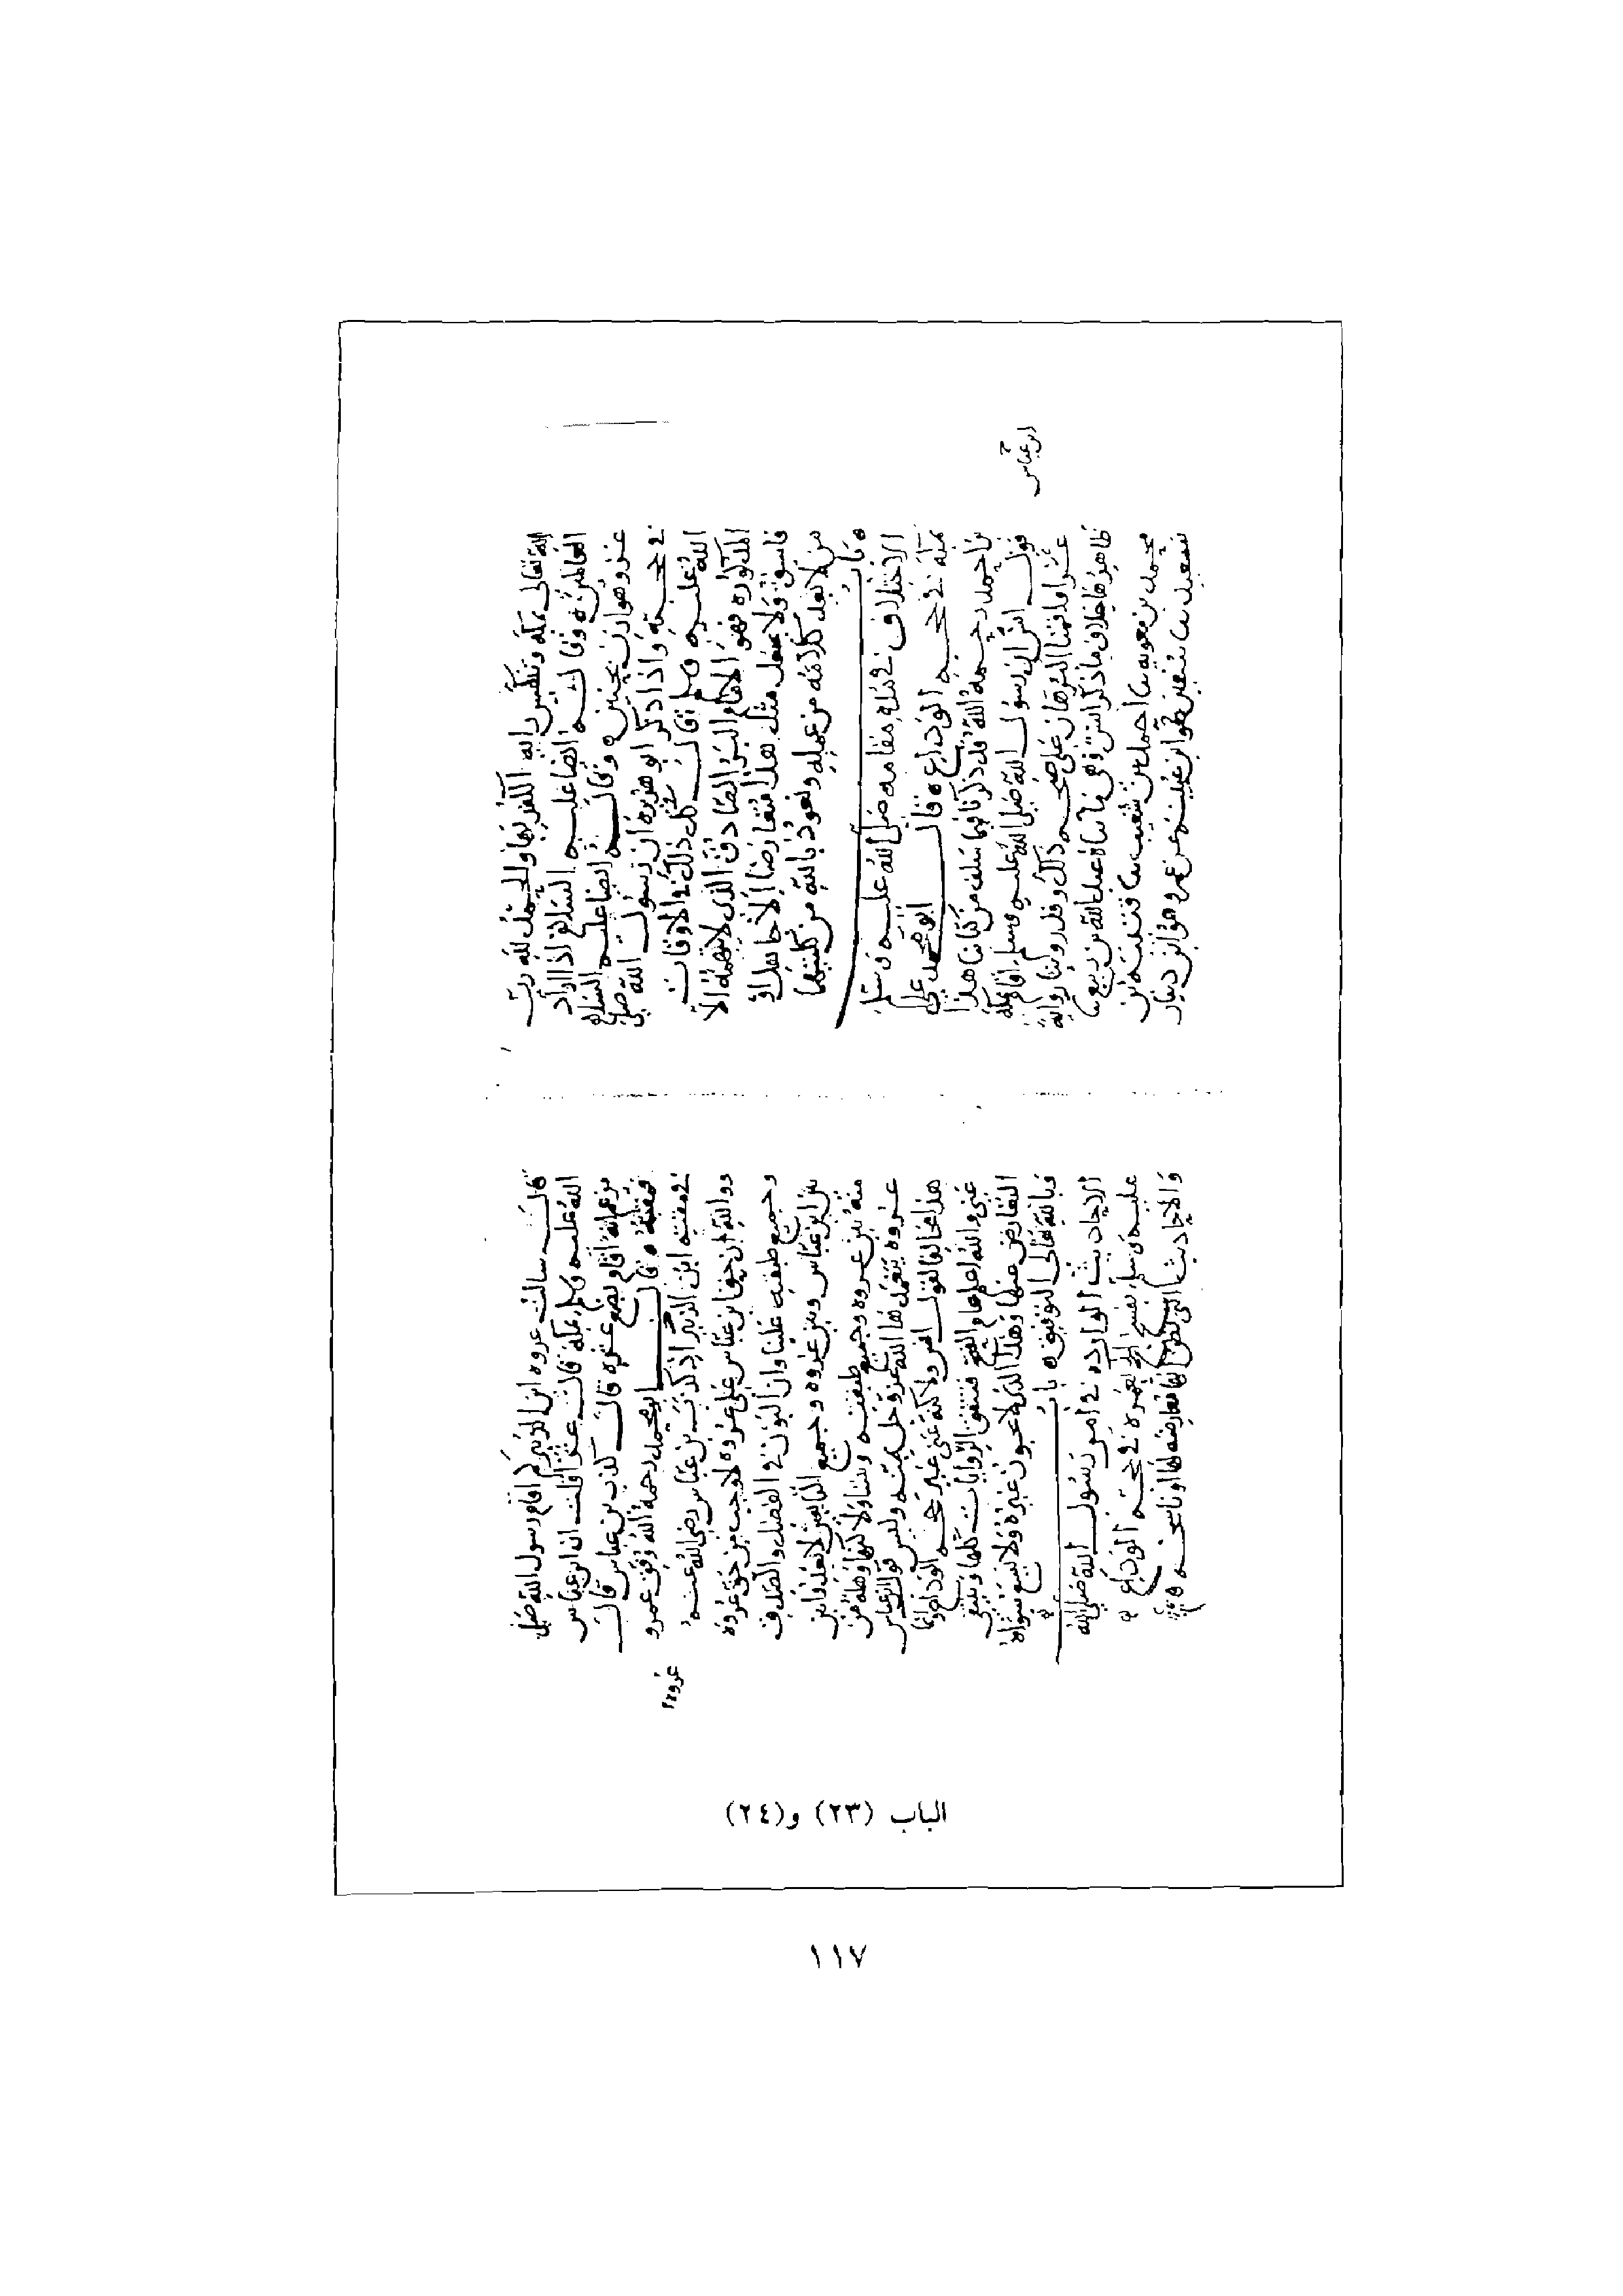 الله تعالى بمكة وتنكيس رايه الكفر بها والحمد لله رب
العالمين ه وقال فيه ايضا عليه السلام اذ اراد
غزو هوازن بحنين ه وقال فيه ايضا عليه السلام
في حجته واذا ذكر ابو هريره ان رسول الله صلى
الله عليه وسلم قال كل ذلك في الاوقات
المذكوره فهو الامام البر الصادق الذي لا يتهمه الا
فاسق ولا يجعل مثل هذا متعارضا الا جاهل او
من لا يعد كلامه من عمله ونعوذ بالله من كلتيهما
ه باب
الاختلاف في مده مقامه صلى الله عليه وسلم
بمكة في حجه الوداع ه قال ابو محمد علي
بن احمد رحمه الله قد ذكرنا فيما سلف من كتابنا هذا
قول انس ان رسول الله صلى الله عليه وسلم اقام بمكة
عشرا واقمنا البرهان على صحه ذلك وقد روينا روايه
ظاهرها خلاف ما ذكر انس وهي ما ناه عبد الله بن ربيع نا
محمد بن معويه نا احمد بن شعيب نا قتيبه بن
سعيد نا سفين هو ابن عيينه عن عمرو هو ابن دينار
ابن عباس
قال سالت عروه ابن الزبير كم اقام رسول الله صلى
الله عليه وسلم بمكة قال عشرا قلت ان ابن عباس
يزعم انه اقام بضع عشره قال كذب بن عباس قال
فمقته ه قال ابو محمد رحمه الله وفق عمرو
في مقته ابن الزبير اذ كذب بن عباس رضي الله عنه
عروه
ووالله ان حق ابن عباس على عروه لاوجب من حق عروه
وجميع طبقته علينا وان البون في الفضل والصدق
بين ابن عباس وبين عروه وجميع التابعين لابعد فابن
منه بين عروه وجميع طبقته وبيننا ولاكنها وهله من
عروه يتغمدها الله عز وجل بمنه وليس قول ابن عباس
هذا مخالفا لقول انس ولاكنه عنى غير حجه الوداع وانما
عنى والله اعلم عام الفتح فتتفق الروايات كلها وينتفي
التعارض عنها وهذا الذي لا يجوز غيره ولا يسع سواه
وبالله تعالى التوفيق ه باب
الاحاديث الوارده في امر رسول الله صلى الله
عليه وسلم بفسخ الحج بعمره في حجه الوداع ه
والاحاديث التي يظن انها معارضه لها او ناسخه ه
الباب (٢٣) و(٢٤)
١١٧